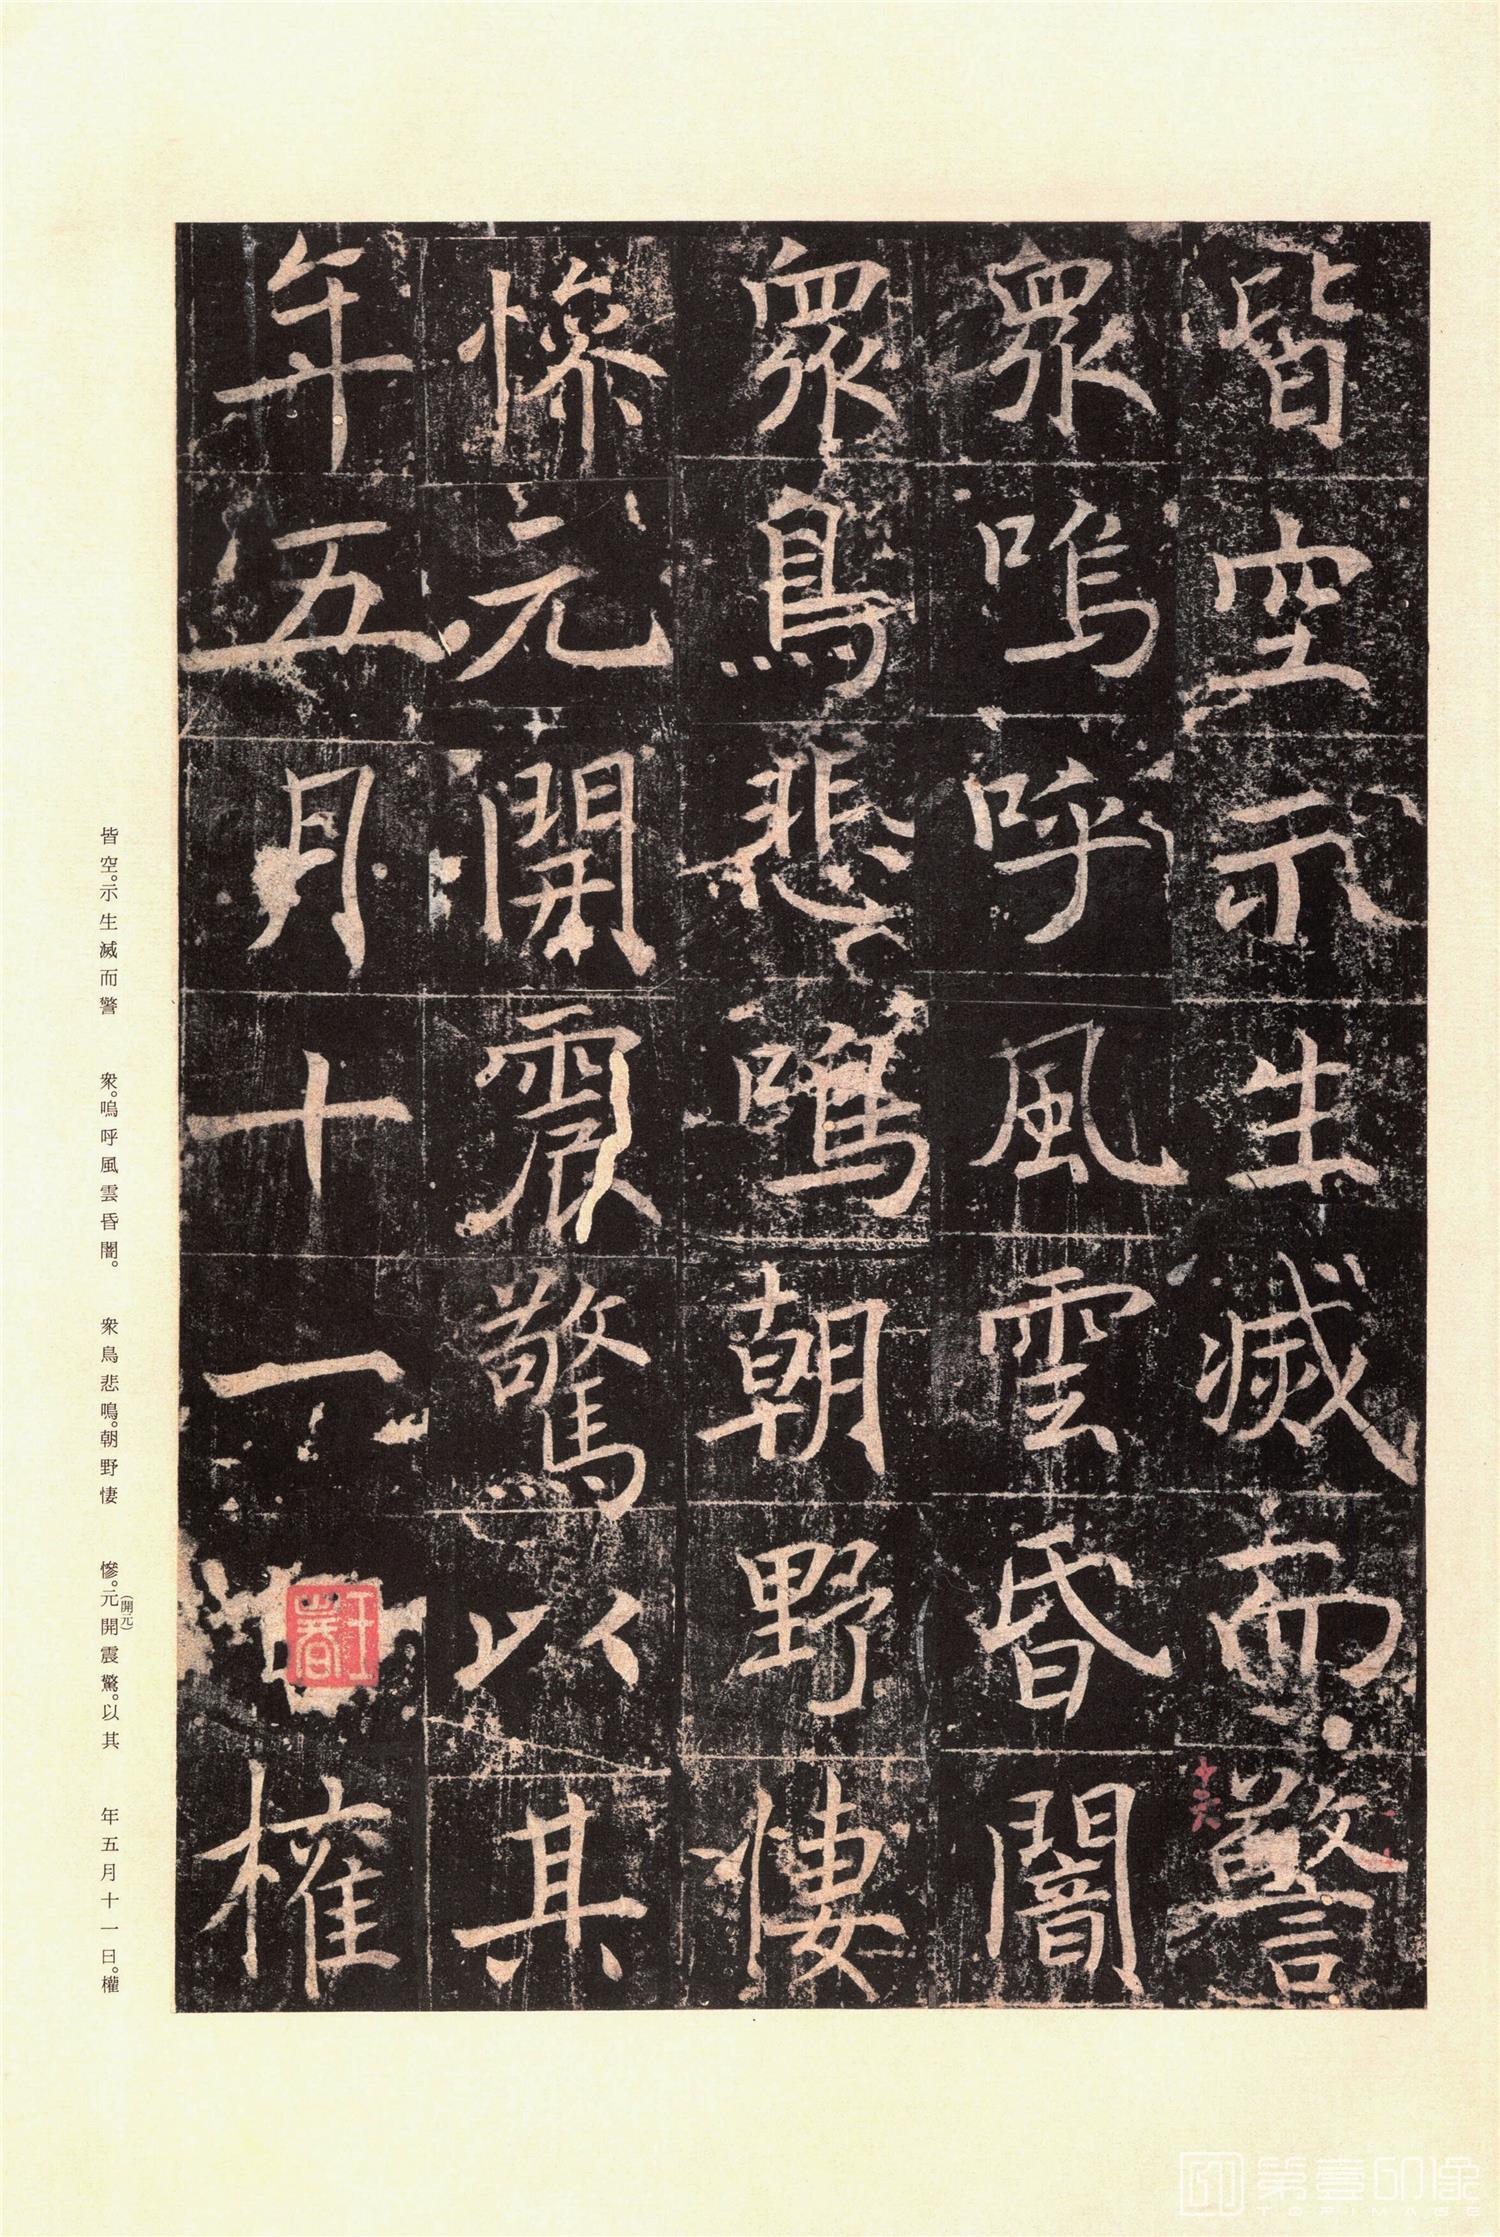 皆空示生滅而警
衆嗚呼風雲昏闇
衆鳥悲鳴朝野悽
慘元開震驚以其
年五月十一日權
王春
十六
皆空。示生滅而警　衆。嗚呼風雲昏闇。　衆鳥悲鳴。朝野悽　慘。元開震驚。以其　年五月十一日。權
(開元)
第壹印像
TOPIMAGE